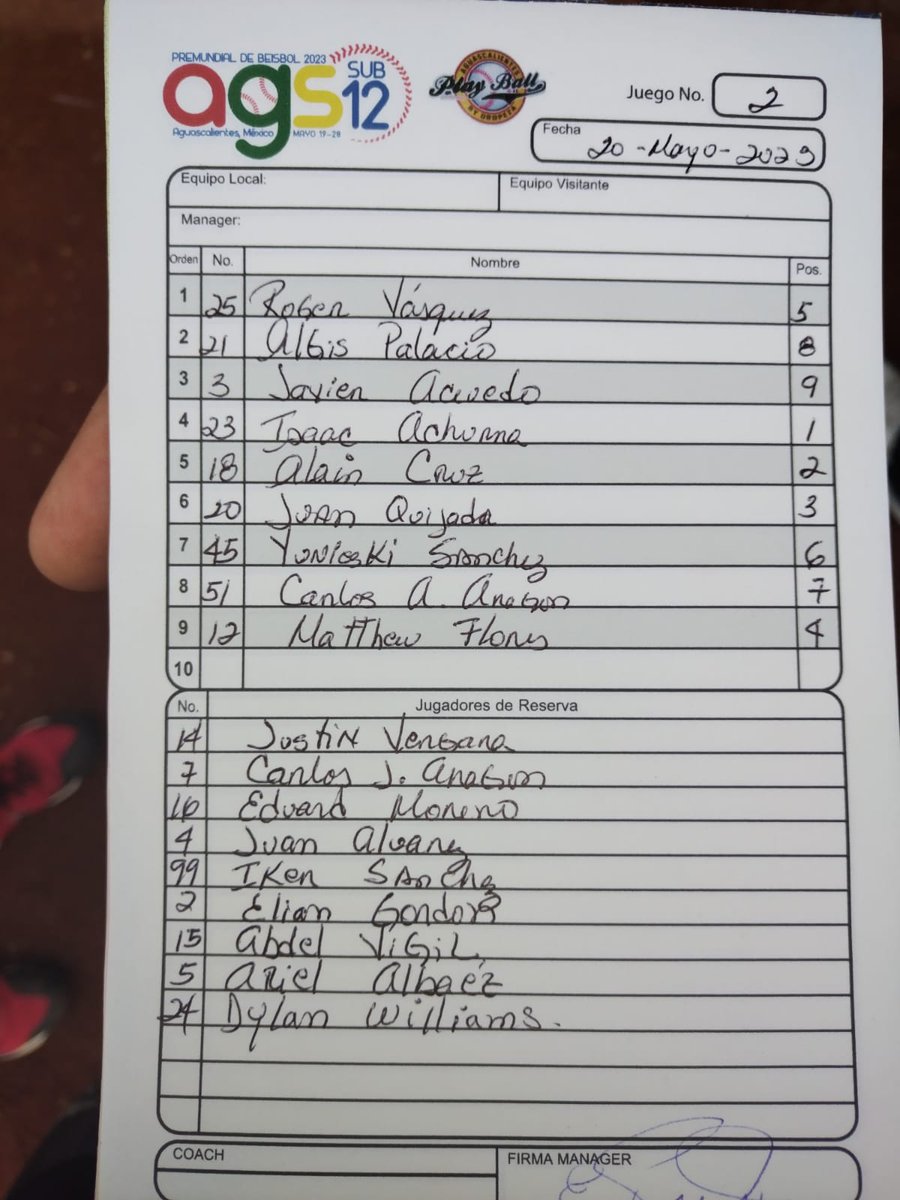 PREMUNDIAL DE BEISBOL 2023
ags SUB 12
Aguascalientes, México MAYO 19-28
AGUASCALIENTES
Play Ball
BY OROPEZA
Juego No. 2
Fecha 20-Mayo-2023
Equipo Local: Equipo Visitante
Manager:
Orden No. Nombre Pos.
1 25 Roger Vásquez 5
2 21 Albis Palacio 8
3 3 Javier Acevedo 9
4 23 Isaac Achurra 1
5 18 Alain Cruz 2
6 20 Juan Quijada 3
7 45 Yunioski Sanchez 6
8 51 Carlos A. Aragon 7
9 12 Matthew Flores 4
10
No. Jugadores de Reserva
14 Justin Vergara
7 Carlos J. Aragon
16 Eduard Moreno
4 Juan Alvarez
99 Iker Sanchez
2 Elian
15 Abdel Vigil
5 Ariel Albaéz
24 Dylan Williams.
COACH FIRMA MANAGER